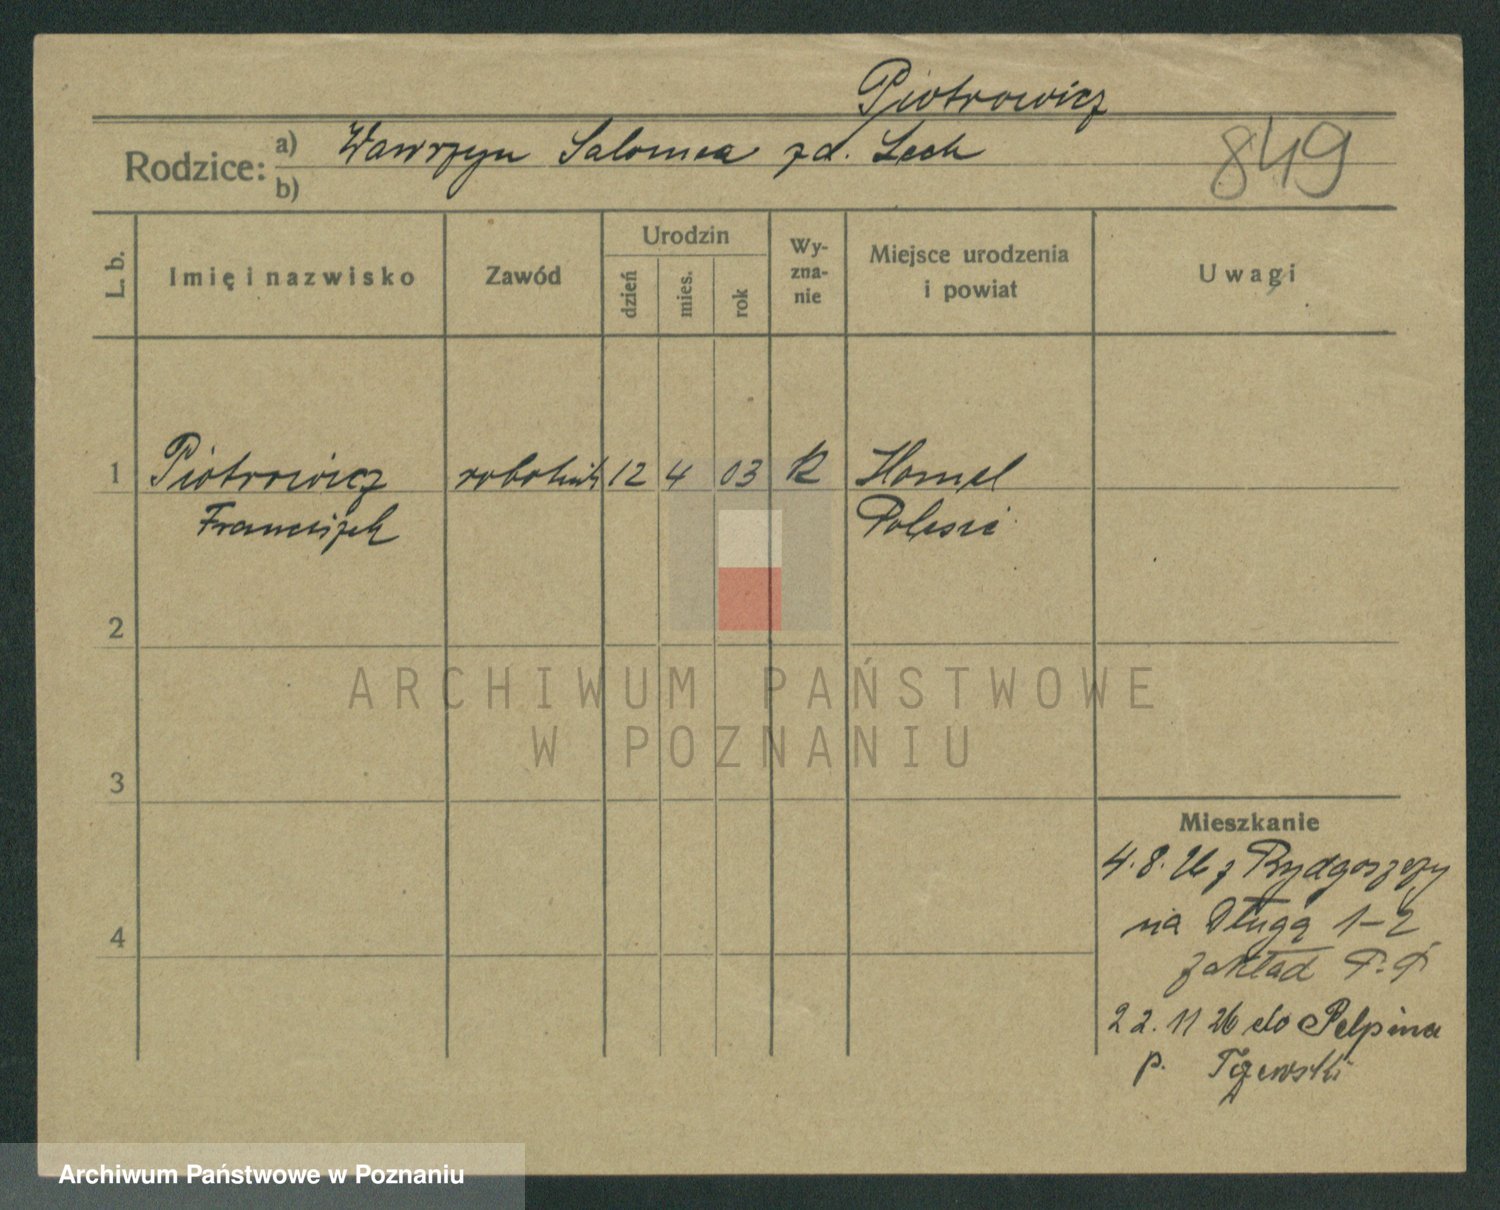 Piotrowicz
Rodzice: a) Wawrzyn Salomea zd. Lech
b)
849
L. b.
Imię i nazwisko
Zawód
Urodzin
dzień
mies.
rok
Wy-
zna-
nie
Miejsce urodzenia
i powiat
Uwagi
1 Piotrowicz robotnik 12 4 03 R Homel
Franciszek Polesie
2
3
4
Mieszkanie
4.8.26 z Bydgoszczy
na Długą 1-2
zakład P.P
22.11 26 do Pelpina
p. Tczewski
ARCHIWUM PAŃSTWOWE
W POZNANIU
Archiwum Państwowe w Poznaniu